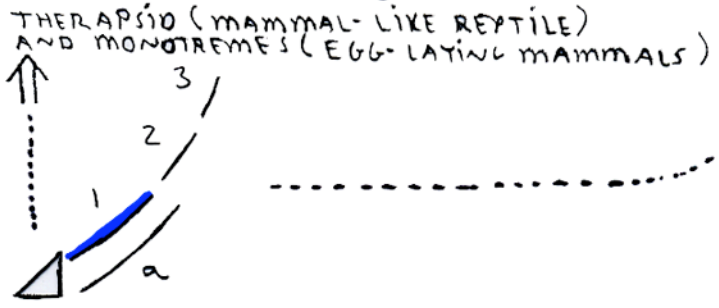 THERAPSID (MAMMAL-LIKE REPTILE)
AND MONOTREMES (EGG-LAYING MAMMALS)
3
2
1
a